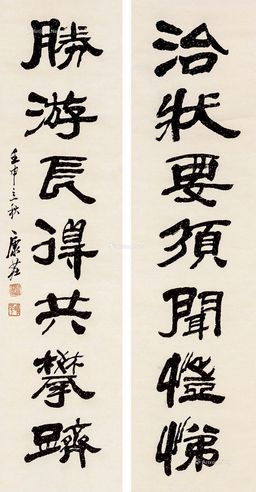 治狀要須聞愷悌
勝游長得共攀躋
壬申之秋 康莊